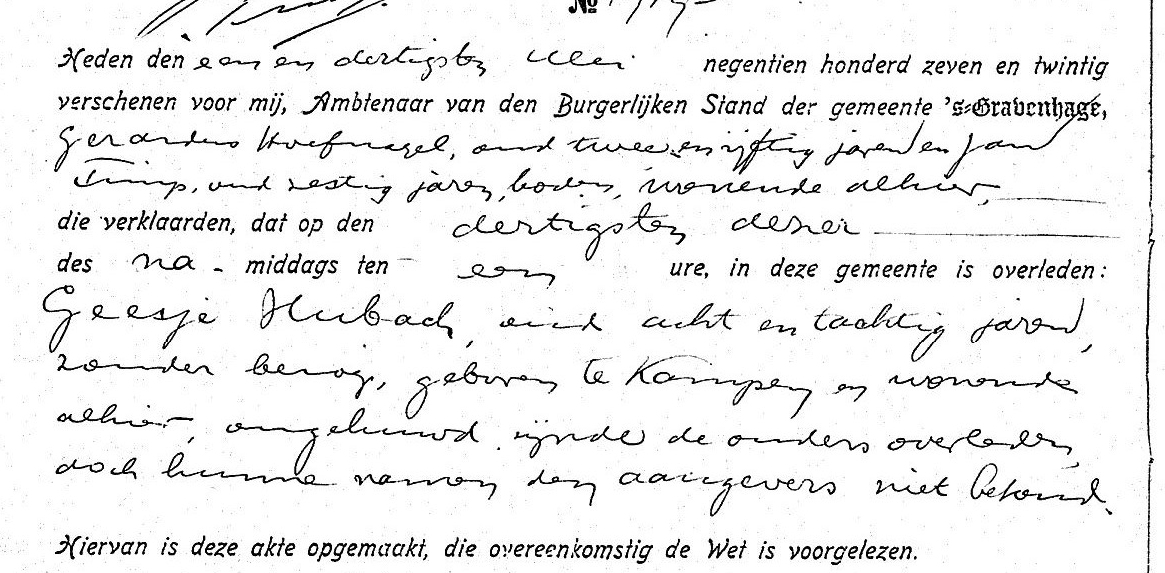 No
Heden den een en dertigsten Mei negentien honderd zeven en twintig
verschenen voor mij, Ambtenaar van den Burgerlijken Stand der gemeente 's-Gravenhage,
Gerardus Hoefnagel, oud twee en vijftig jaren en Jan
Timp, oud zestig jaren, boden, wonende alhier,
die verklaarden, dat op den dertigsten dezer
des na-middags ten een ure, in deze gemeente is overleden:
Geesje Hubach, oud acht en tachtig jaren,
zonder beroep, geboren te Kampen en wonende
alhier, ongehuwd zijnde de ouders overleden,
doch hunne namen den aangevers niet bekend.
Hiervan is deze akte opgemaakt, die overeenkomstig de Wet is voorgelezen.